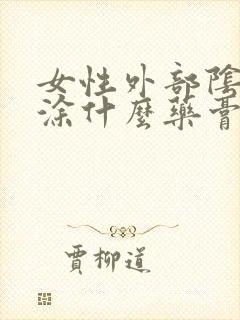 女性外部陰
涂什麼藥膏
賈柳道